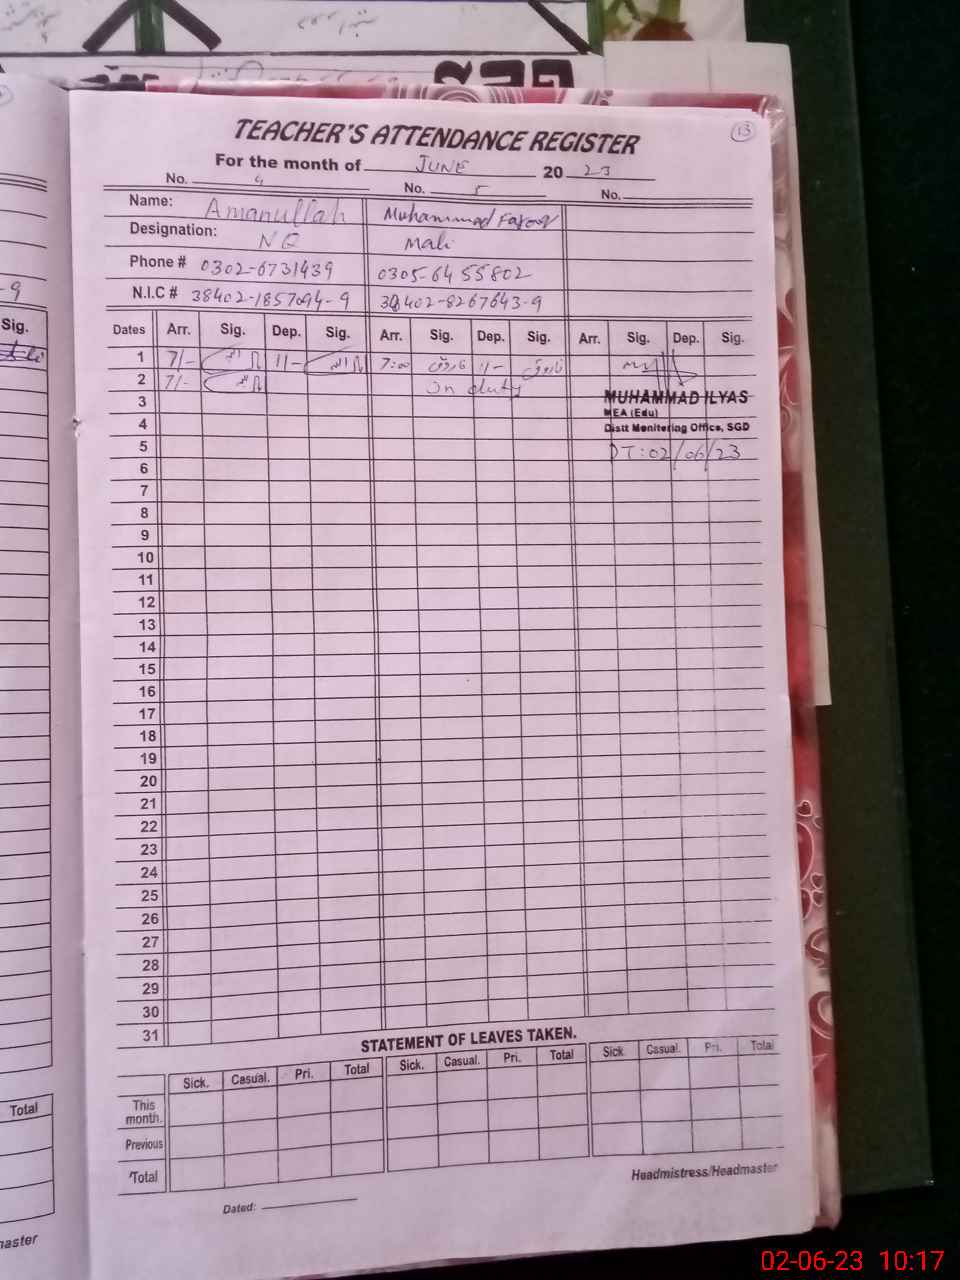 13
TEACHER'S ATTENDANCE REGISTER
For the month of JUNE 20 23
No. 4 No. 5 No.
Name: Amanullah Muhammad Farooq
Designation: NQ Mali
Phone # 0302-6731439 0305-6455802
N.I.C # 38402-1857094-9 38402-8267643-9
-9
Sig.
Dates Arr. Sig. Dep. Sig. Arr. Sig. Dep. Sig. Arr. Sig. Dep. Sig.
1 7/- 11- 7:00 فاروق 11- فاروق
2 7/- on duty
MUHAMMAD ILYAS
3
MEA (Edu)
4 Distt Monitering Office, SGD
5 DT:02/06/23
6
7
8
9
10
11
12
13
14
15
16
17
18
19
20
21
22
23
24
25
26
27
28
29
30
31
STATEMENT OF LEAVES TAKEN.
Sick. Casual. Pri. Total Sick. Casual. Pri. Total Sick. Casual. Pri. Total
Total
This
month.
Previous
Total
Headmistress/Headmaster
Dated:
master
02-06-23 10:17